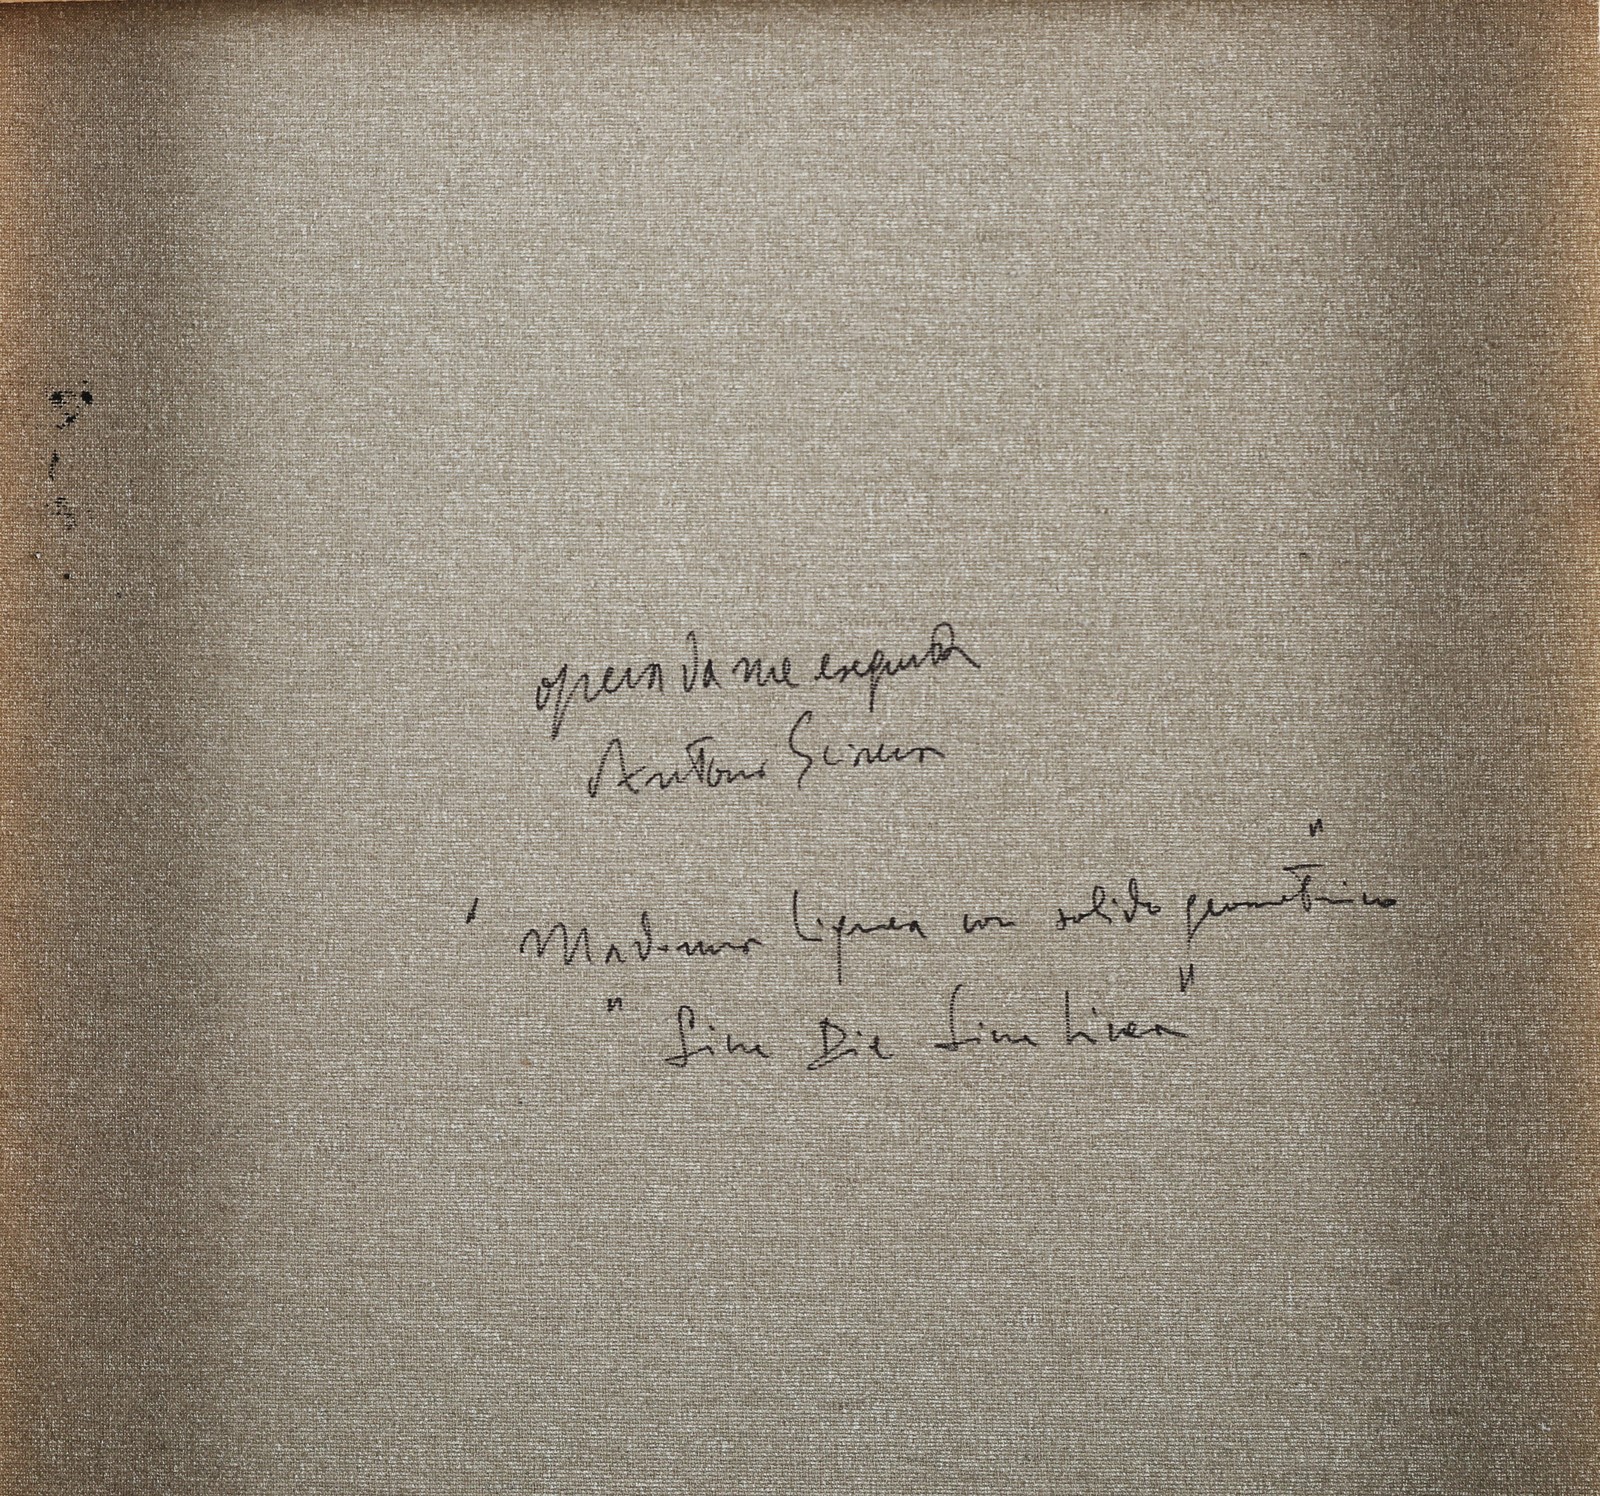 opera da me eseguita
Antonio Sciacca
"Madonna Lignea con solido geometrico"
"Sine Die Sine Linea"